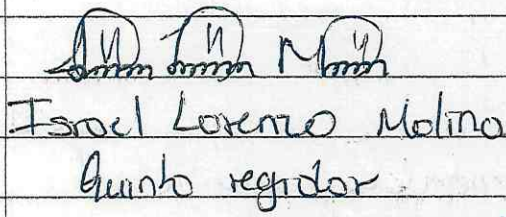 Israel Lorenzo Molina
Quinto regidor